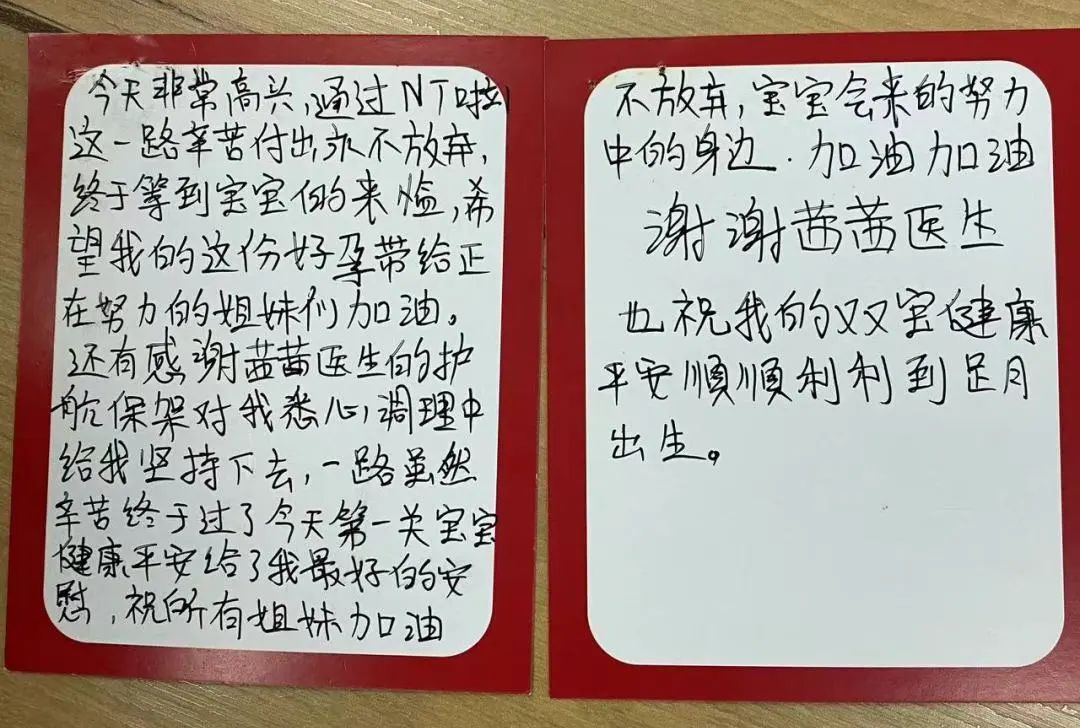 今天非常高兴,通过NT啦,
这一路辛苦付出永不放弃,
终于等到宝宝的来临,希
望我的这份好孕带给正
在努力的姐妹们加油。
还有感谢茜茜医生的护
航保架对我悉心,调理中
给我坚持下去,一路虽然
辛苦终于过了今天第一关宝宝
健康平安给了我最好的安
慰,祝所有姐妹加油
不放弃,宝宝会来的努力
中的身边.加油加油
谢谢茜茜医生
也祝我的双宝健康
平安顺顺利利到足月
出生。